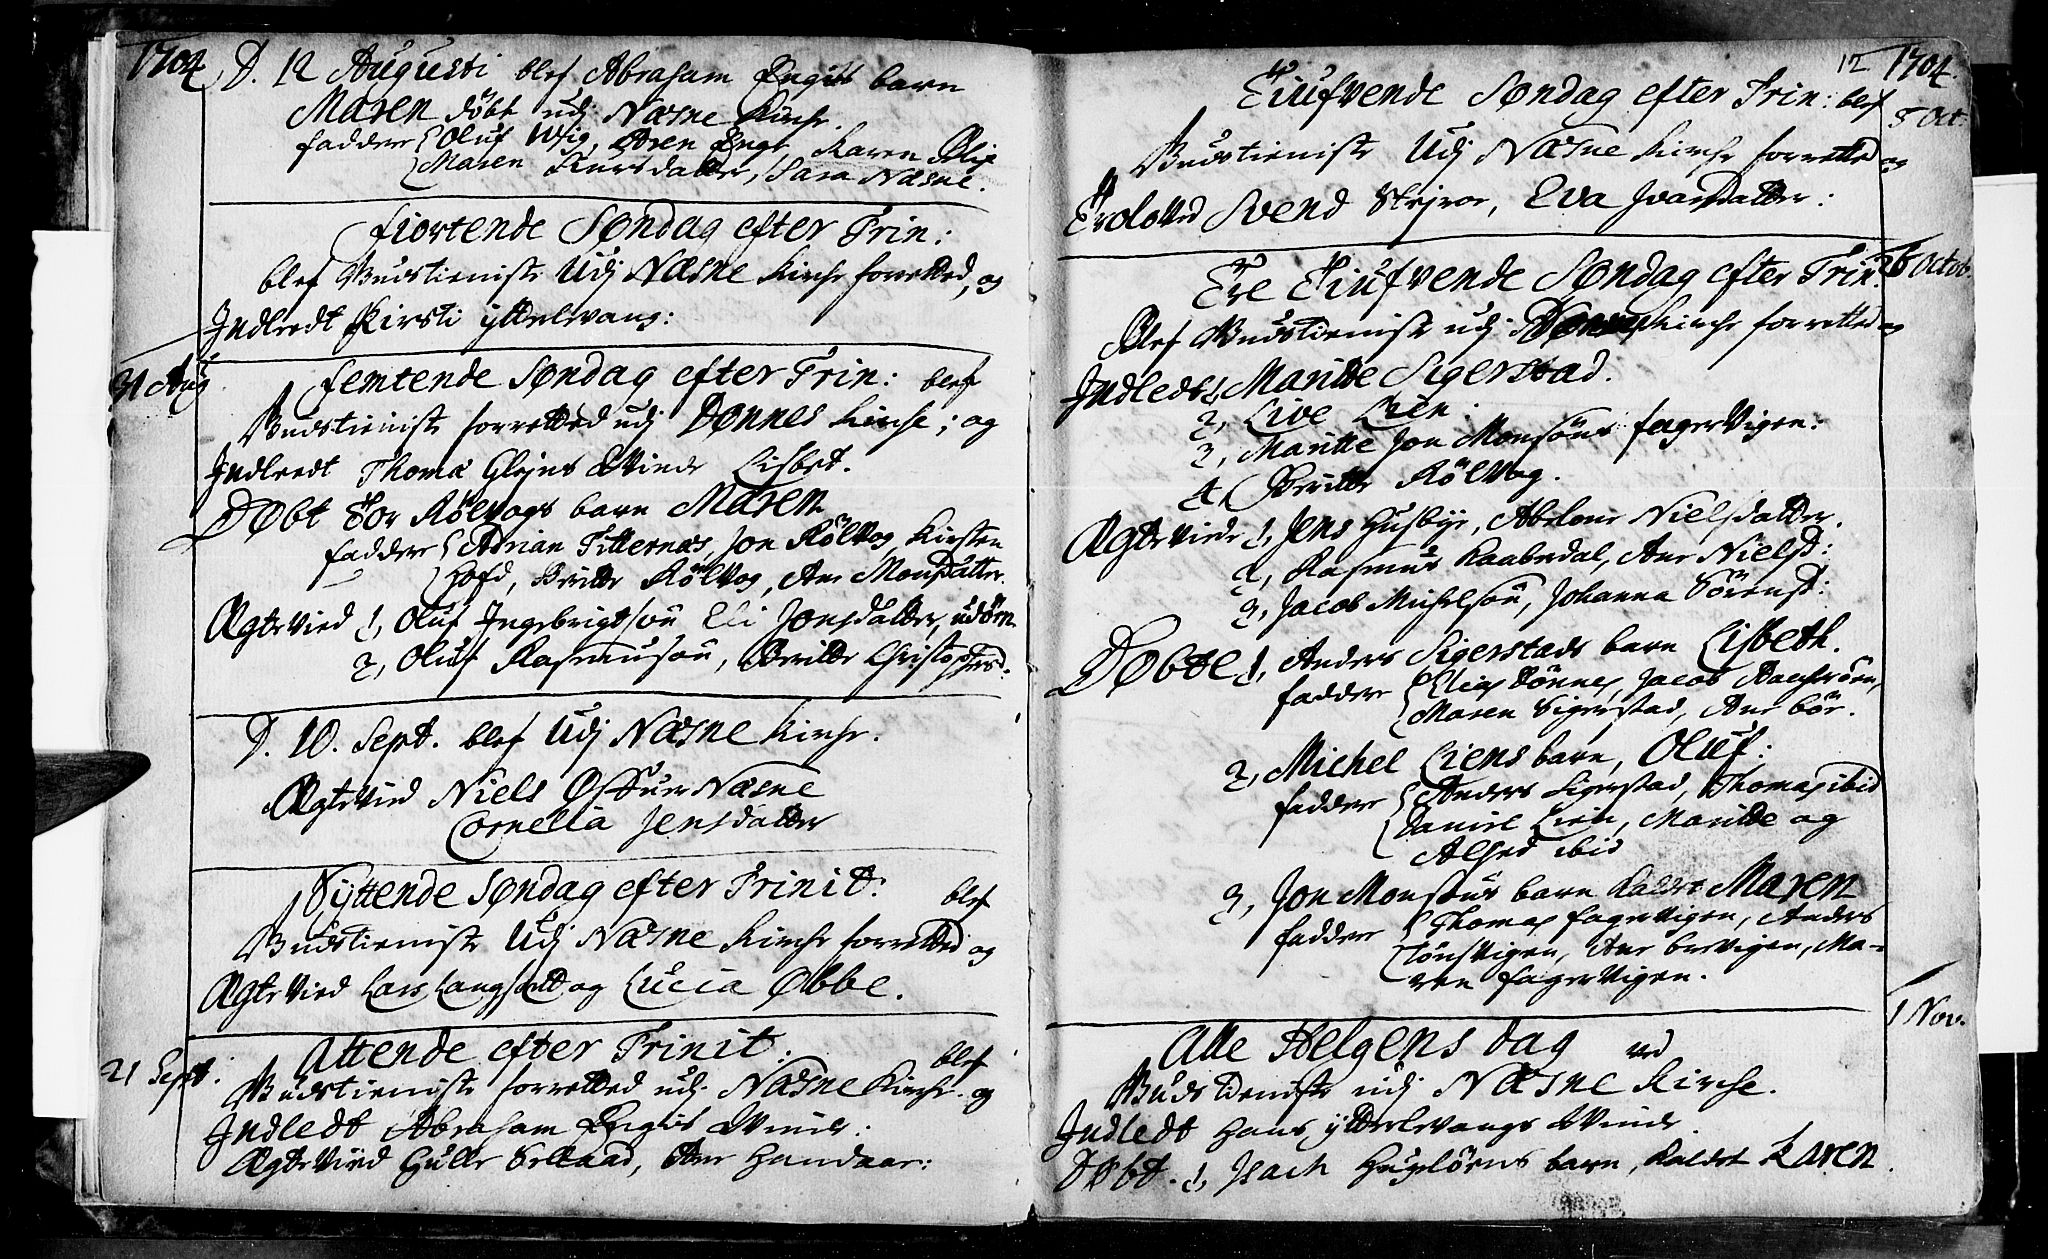 1704
D. 12 Augusti blef Abraham Engets barn
Maren döbt udj Næsne Kirche.
faddere Oluf Usig, Karen Blix
Maren Iversdatter, Sara Næsne.
fiortende Søndag efter Trin:
blef Gudstieniste Udj Næsne Kirche forretted, og
Indleedt Kirsti ytterlevang:
31 Aug
femtende Søndag efter Trin: blef
Gudstieniste forretted udj Dønnes Kirche; og
Indleedt Thoma Qvinde Lisbet.
Døbt Rölvogs barn Maren
faddere Adrian Titternæs, Jon Rölvog, Kirsten
Hofd, Beritte Rölvog, Ane Monsdatter.
Ægtevied 1, Oluf Ingebrigtsön Eli Jonsdatter,
2, Oluf Rasmusön, Beritte Christophersd:
D. 10. Sept. blef Udj Næsne Kirche.
Ægteviid Niels Næsne
Cornelia Jensdatter
Syttende Søndag efter Trinit: blef
Gudstieniste Udj Næsne Kirche forretted og
Ægteviied Lars Langset og Lucia Øbbe.
21 Sept.
Attende efter Trinit: blef
Gudstieniste forretted udj Næsne Kirche. og
Indledt Abraham Engets Qvinde:
Ægteviied Gulle Selvaad, Ane Handaar:
12 1704.
Tiufvende Søndag efter Trin: blef
5 Oct.
Gudstieniste Udj Næsne Kirche forretted og
Troloved Svend Skejroe, Eva Joansdatter:
Tre Tiufvende Søndag efter Trin:
26 Octob.
Blef Gudstieniste udj Dønnes Kirche forretted og
Indledt 1, Maritte Sigerstad.
2, Live Lien.
3, Maritte Jon Monsöns fagervigen:
4, Beritte Rölvog.
Ægteviede 1, Jens Husbye, Abelone Nielsdatter.
2, Rasmus Kaaberdal, Ane Nielsd:
3, Jacob Michelsön, Johanna Sörensd:
Døbte 1, Anders Sigerstads barn Lisbeth.
faddere Elias Dönnes, Jacob
Maren Sigerstad, Ane bör.
2, Michel Liens barn, Oluf:
faddere Anders Sigerstad, Thomas ibid
Daniel Lien, Maritte og
Alhed ibid
3, Jon Monsöns barn Kaldet Maren
faddere Thomas fagervigen, Anders
Tönsvigen, Ane bervigen, Ma-
ren fagervigen.
1 Nov.
Alle Helgens Dag ved
Gudstieniste udj Næsne Kirche.
Indledt Hans ytterlevangs Qvinde.
Døbt. 1, Isach Huglöens barn, Kaldet Karen.